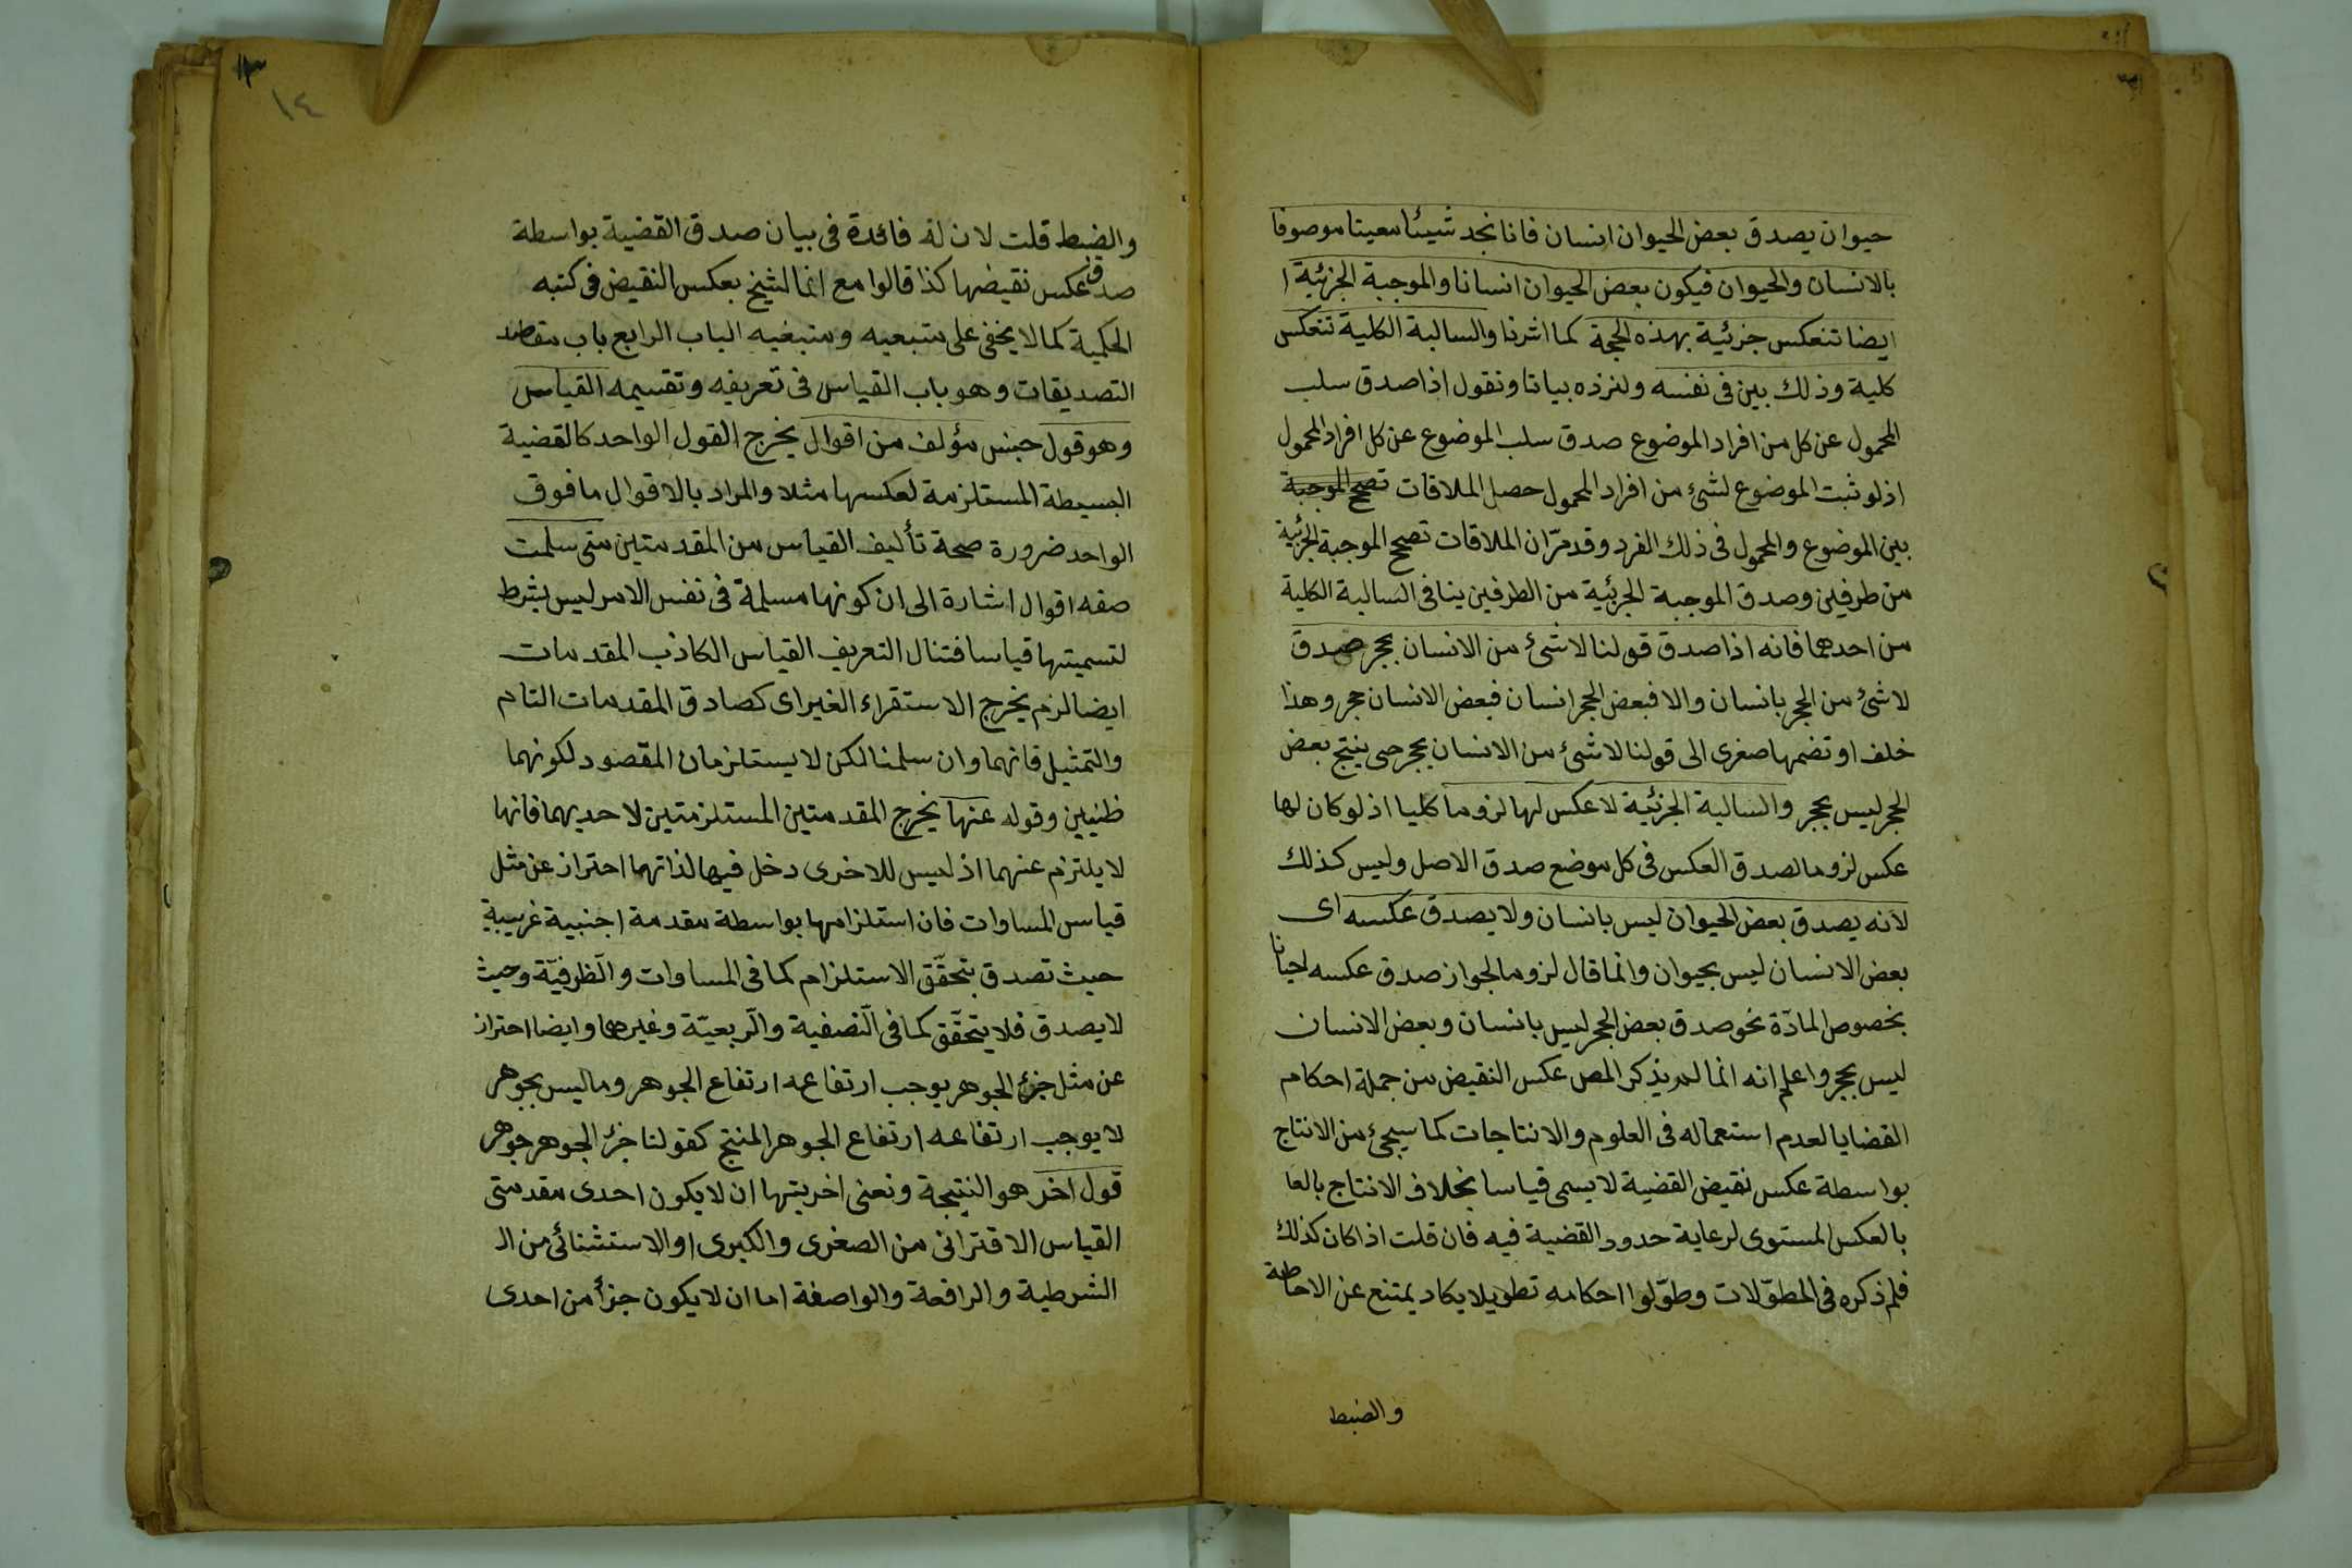 حيوان يصدق بعض الحيوان انسان فانا نجد شيئا معينا موصوفا
بالانسان والحيوان فيكون بعض الحيوان انسانا والموجبة الجزئية
ايضا تنعكس جزئية بهذه الحجة كما اشرنا والسالبة الكلية تنعكس
كلية وذلك بين فى نفسه ولنزده بيانا ونقول اذا صدق سلب
المحمول عن كل من افراد الموضوع صدق سلب الموضوع عن كل افراد المحمول
اذ لو ثبت الموضوع لشئ من افراد المحمول حصل الملاقات تصحح الموجبة
بين الموضوع والمحمول فى ذلك الفرد وقد مرّ ان الملاقات تصحح الموجبة الجزئية
من طرفين وصدق الموجبة الجزئية من الطرفين ينافى السالبة الكلية
من احدهما فانه اذا صدق قولنا لا شئ من الانسان بحجر صدق
لا شئ من الحجر بانسان والا فبعض الحجر انسان فبعض الانسان حجر وهذا
خلف او تضمها صغرى الى قولنا لا شئ من الانسان بحجر حى ينتج بعض
الحجر ليس بحجر والسالبة الجزئية لا عكس لها لزوما كليا اذ لو كان لها
عكس لزوما لصدق العكس فى كل موضع صدق الاصل وليس كذلك
لانه يصدق بعض الحيوان ليس بانسان ولا يصدق عكسه اى
بعض الانسان ليس بحيوان وانما قال لزوما لجواز صدق عكسه احيانا
بخصوص المادّة نحو صدق بعض الحجر ليس بانسان وبعض الانسان
ليس بحجر واعلم انه انما لم يذكر المص عكس النقيض من جملة احكام
القضايا لعدم استعماله فى العلوم والانتاجات كما سيجئ من الانتاج
بواسطة عكس نقيض القضية لا يسمى قياسا بخلاف الانتاج بالعا
بالعكس المستوى لرعاية حدود القضية فيه فان قلت اذا كان كذلك
فلم ذكره فى المطوّلات وطوّلوا احكامه تطويلا يكاد يمتنع عن الاحاطة
والضبط
١٣
١٤
والضبط قلت لان له فائدة فى بيان صدق القضية بواسطة
صدق عكس نقيضها كذا قالوا مع انما الشيخ بعكس النقيض فى كتبه
الحكمية كما لا يخفى على متبعيه ومتبغيه الباب الرابع باب مقاصد
التصديقات وهو باب القياس فى تعريفه وتقسيمه القياس
وهو قول جنس مؤلف من اقوال يخرج القول الواحد كالقضية
البسيطة المستلزمة لعكسها مثلا والمراد بالاقوال ما فوق
الواحد ضرورة صحة تأليف القياس من المقدمتين متى سلمت
صفه اقوال اشارة الى ان كونها مسلمة فى نفس الامر ليس بشرط
لتسميتها قياسا فتنال التعريف القياس الكاذب المقدمات
ايضا لزم يخرج الاستقراء الغير اى كصادق المقدمات التام
والتمثيل فانهما وان سلمنا لكن لا يستلزمان المقصود لكونهما
ظنيين وقوله عنها يخرج المقدمتين المستلزمتين لاحديهما فانها
لا يلتزم عنهما اذ ليس للاخرى دخل فيها لذاتهما احتراز عن مثل
قياس المساوات فان استلزامها بواسطة مقدمة اجنبية غريبة
حيث تصدق بتحقّق الاستلزام كما فى المساوات والظرفيّة وحيث
لا يصدق فلا يتحقّق كما فى النصفية والربعيّة وغيرهما وايضا احتراز
عن مثل جزئ الجوهر يوجب ارتفاعه ارتفاع الجوهر وما ليس بجوهر
لا يوجب ارتفاعه ارتفاع الجوهر المنتج كقولنا جزئ الجوهر جوهر
قول اخر هو النتيجة ونعنى اخريتها ان لا يكون احدى مقدمتى
القياس الاقترانى من الصغرى والكبرى او الاستثنائى من ال
الشرطية والرافعة والواضعة اما ان لا يكون جزأ من احدى